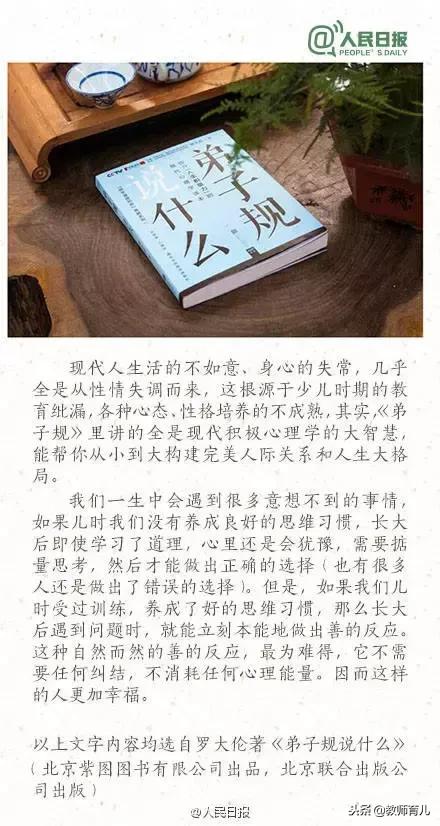 @人民日报
PEOPLE'S DAILY
弟子规
说
什么
现代人生活的不如意、身心的失常，几乎
全是从性情失调而来，这根源于少儿时期的教
育纰漏，各种心态、性格培养的不成熟，其实，《弟
子规》里讲的全是现代积极心理学的大智慧，
能帮你从小到大构建完美人际关系和人生大格
局。
我们一生中会遇到很多意想不到的事情，
如果儿时我们没有养成良好的思维习惯，长大
后即使学习了道理，心里还是会犹豫，需要掂
量思考，然后才能做出正确的选择（也有很多
人还是做出了错误的选择）。但是，如果我们儿
时受过训练，养成了好的思维习惯，那么长大
后遇到问题时，就能立刻本能地做出善的反应。
这种自然而然的善的反应，最为难得，它不需
要任何纠结，不消耗任何心理能量。因而这样
的人更加幸福。
以上文字内容均选自罗大伦著《弟子规说什么》
（北京紫图图书有限公司出品，北京联合出版公
司出版）
@人民日报
头条@教师育儿